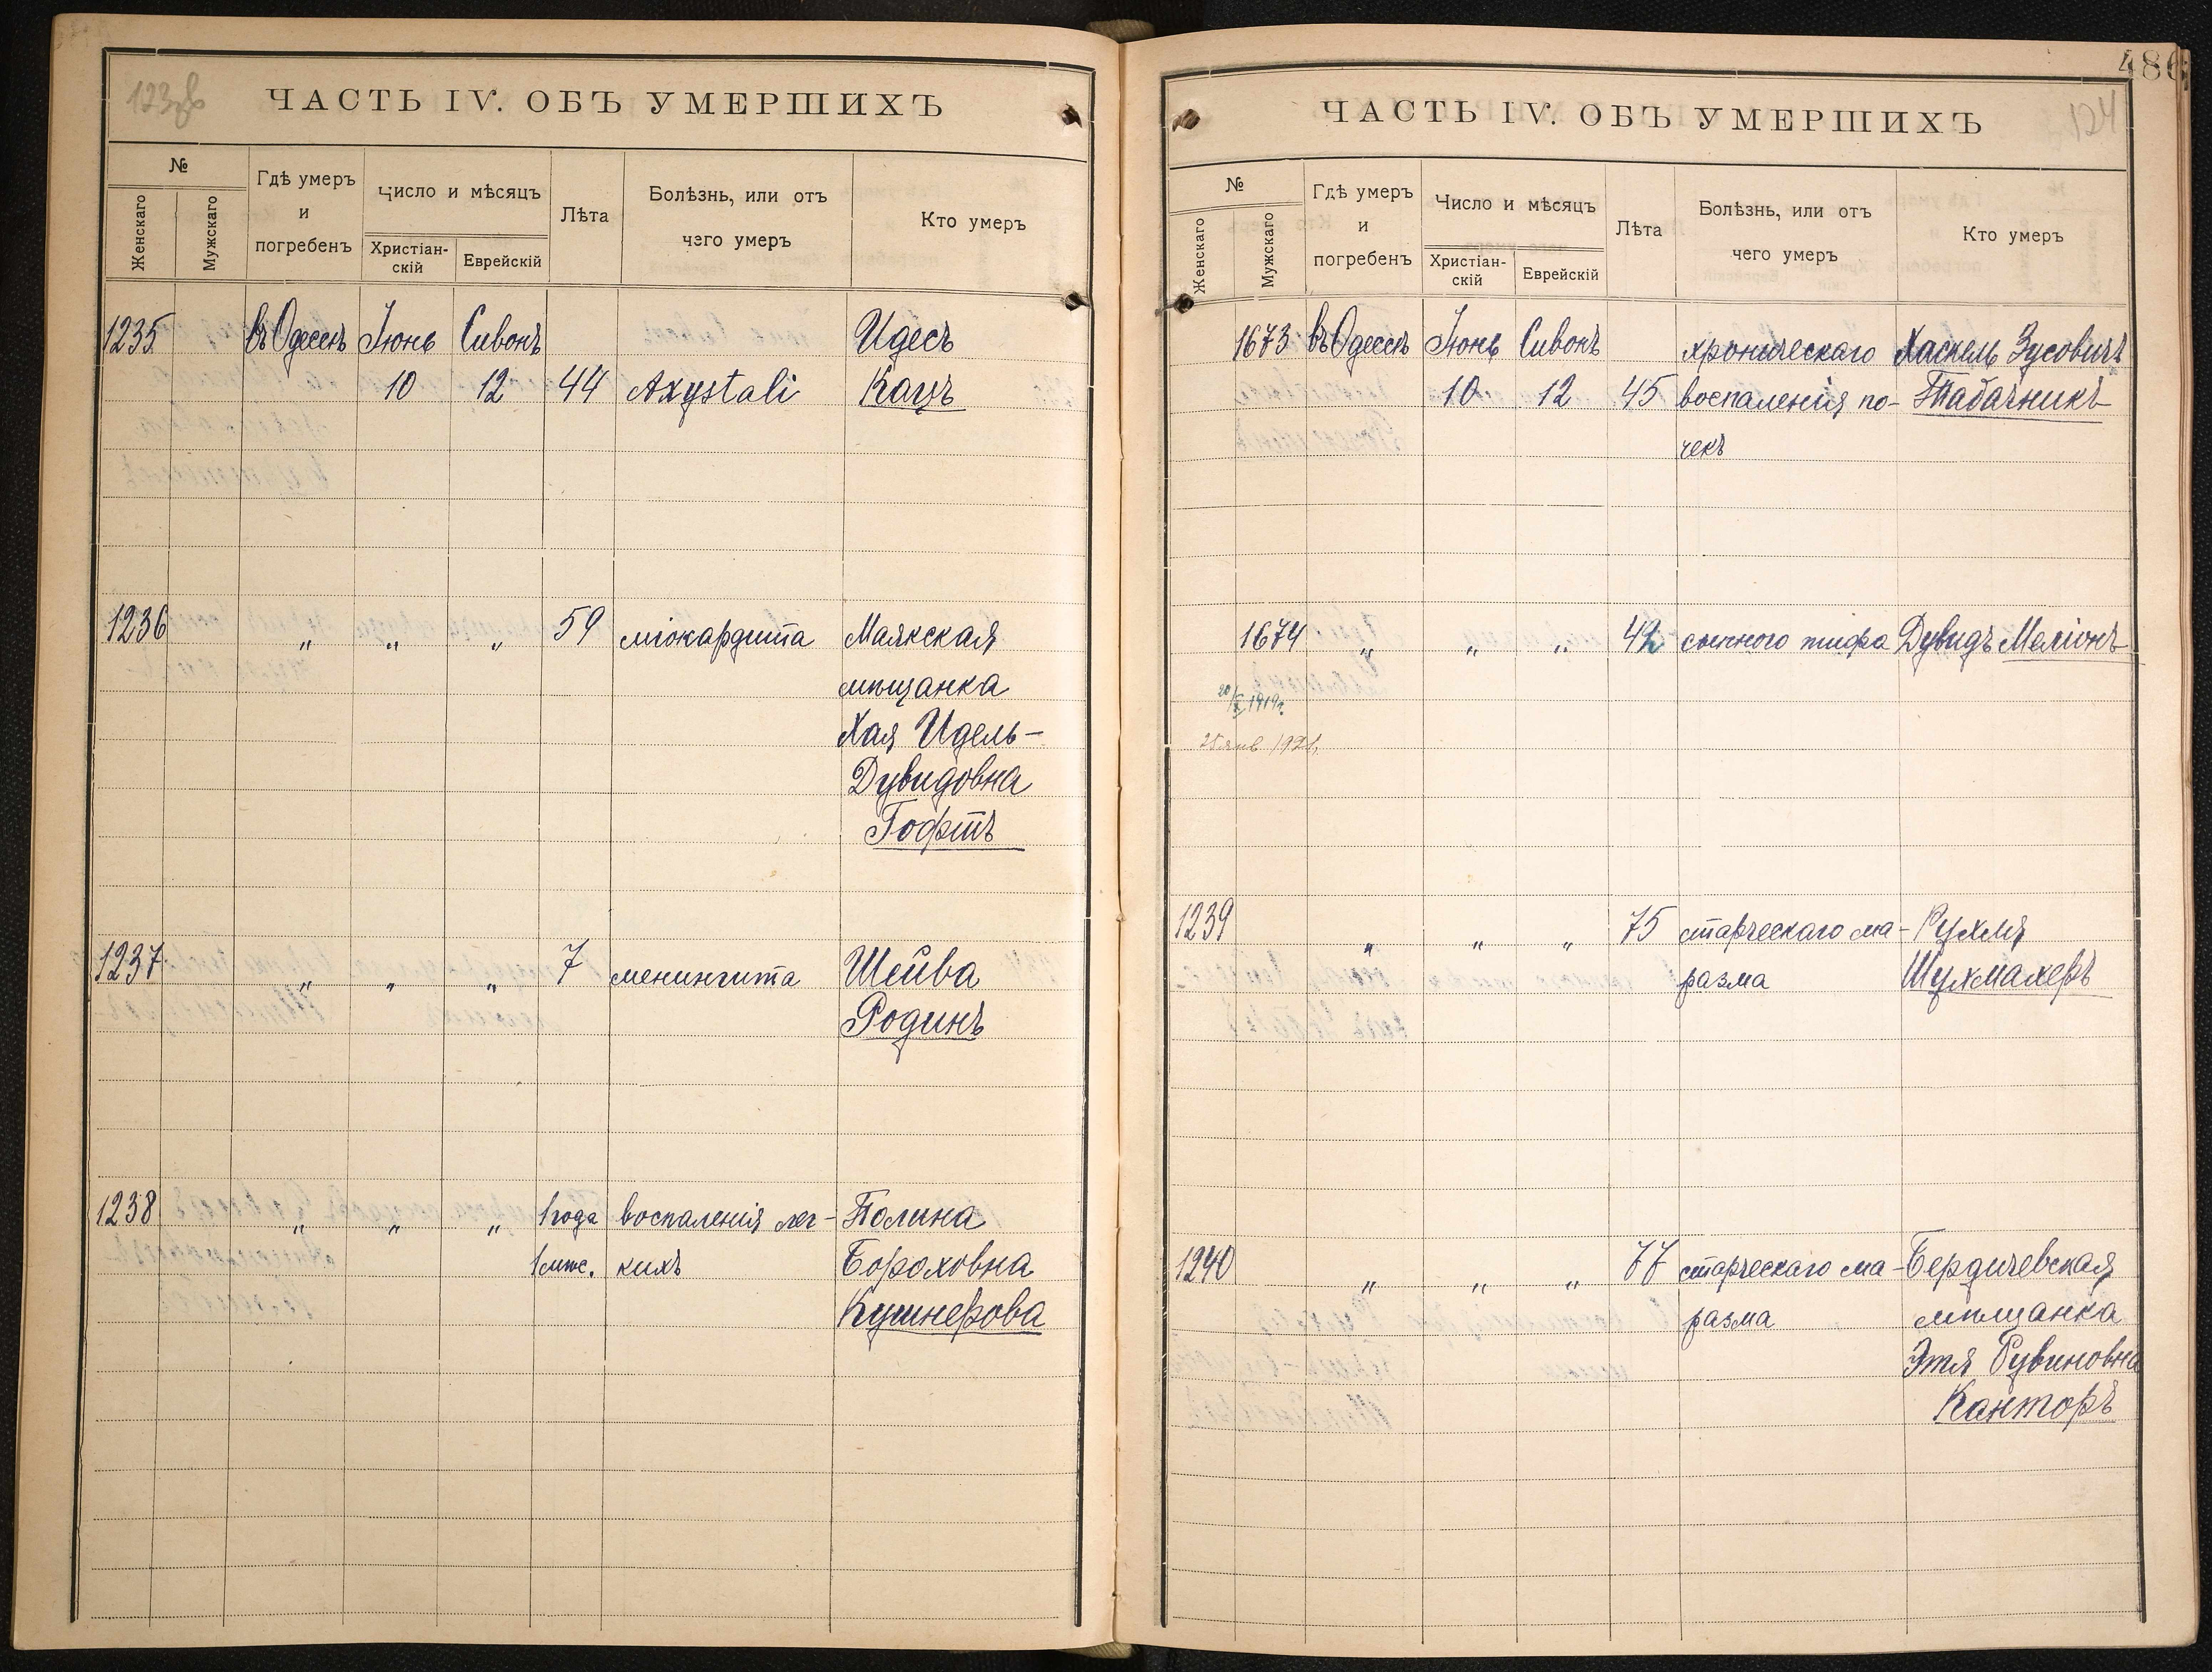 123об
ЧАСТЬ IV. ОБЪ УМЕРШИХЪ
№
Женскаго
Мужскаго
Гдѣ умеръ
и
погребенъ
Число и мѣсяцъ
Христіан-
скій
Еврейскій
Лѣта
Болѣзнь, или отъ
чего умеръ
Кто умеръ
1235 въ Одессѣ Іюнь Сивонъ Идесъ
10 12 44 Axystali Кацъ
1236 " " " 59 міокардита Маякская
мѣщанка
Хая Идель-
Дувидовна
Гофтъ
1237 " " " 7 менингита Шейва
Родинъ
1238 " " " 1 года воспаленія лег- Полина
1 мѣс. кихъ Бороховна
Кушнерова
486
124
ЧАСТЬ IV. ОБЪ УМЕРШИХЪ
№
Женскаго
Мужскаго
Гдѣ умеръ
и
погребенъ
Число и мѣсяцъ
Христіан-
скій
Еврейскій
Лѣта
Болѣзнь, или отъ
чего умеръ
Кто умеръ
1673 въ Одессѣ Іюнь Сивонъ хроническаго Хаскель Зусовичъ
10 12 45 воспаленія по- Табачникъ
чекъ
1674 " " " 42 сыпного тифа Дувидъ Меліонъ
20/X 1919г.
25 янв 1921.
1239 " " " 75 старческаго ма- Рухля
разма Шухмахеръ
1240 " " " 77 старческаго ма- Бердичевская
разма мѣщанка
Этя Рувиновна
Канторъ